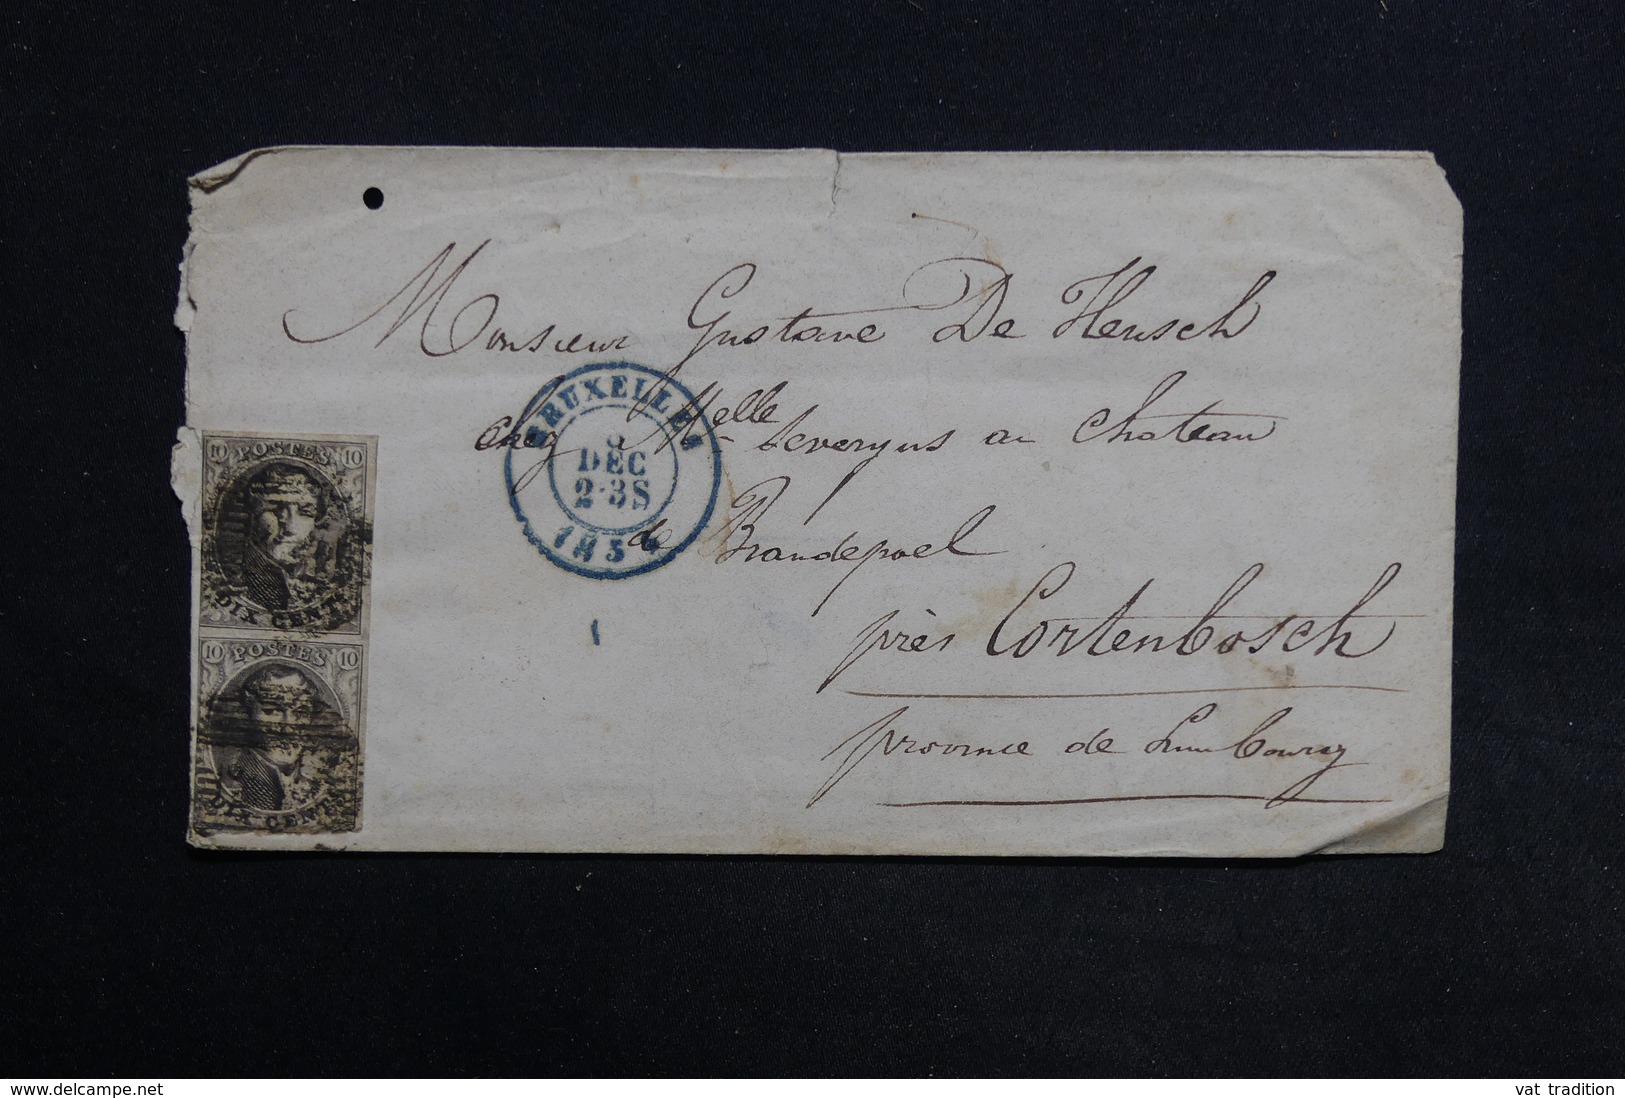 Monsieur Gustave De Heusch
chez Melle Severyns au Chateau
de Brandepoel
près Cortenbosch
province de Limbourg
BRUXELLES
DEC
2·3S
185
1
10 POSTES 10
DIX CENT.
10 POSTES 10
DIX CENT.
www.delcampe.net
vat tradition